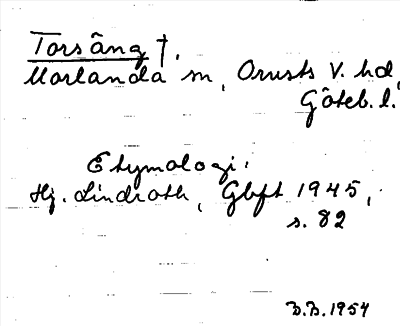 Torsång †.
Morlanda sn, Orusts V. hd,
Göteb. l.
Etymologi.
Hj. Lindroth, Gbft 1945,
s. 82
B.B. 1954